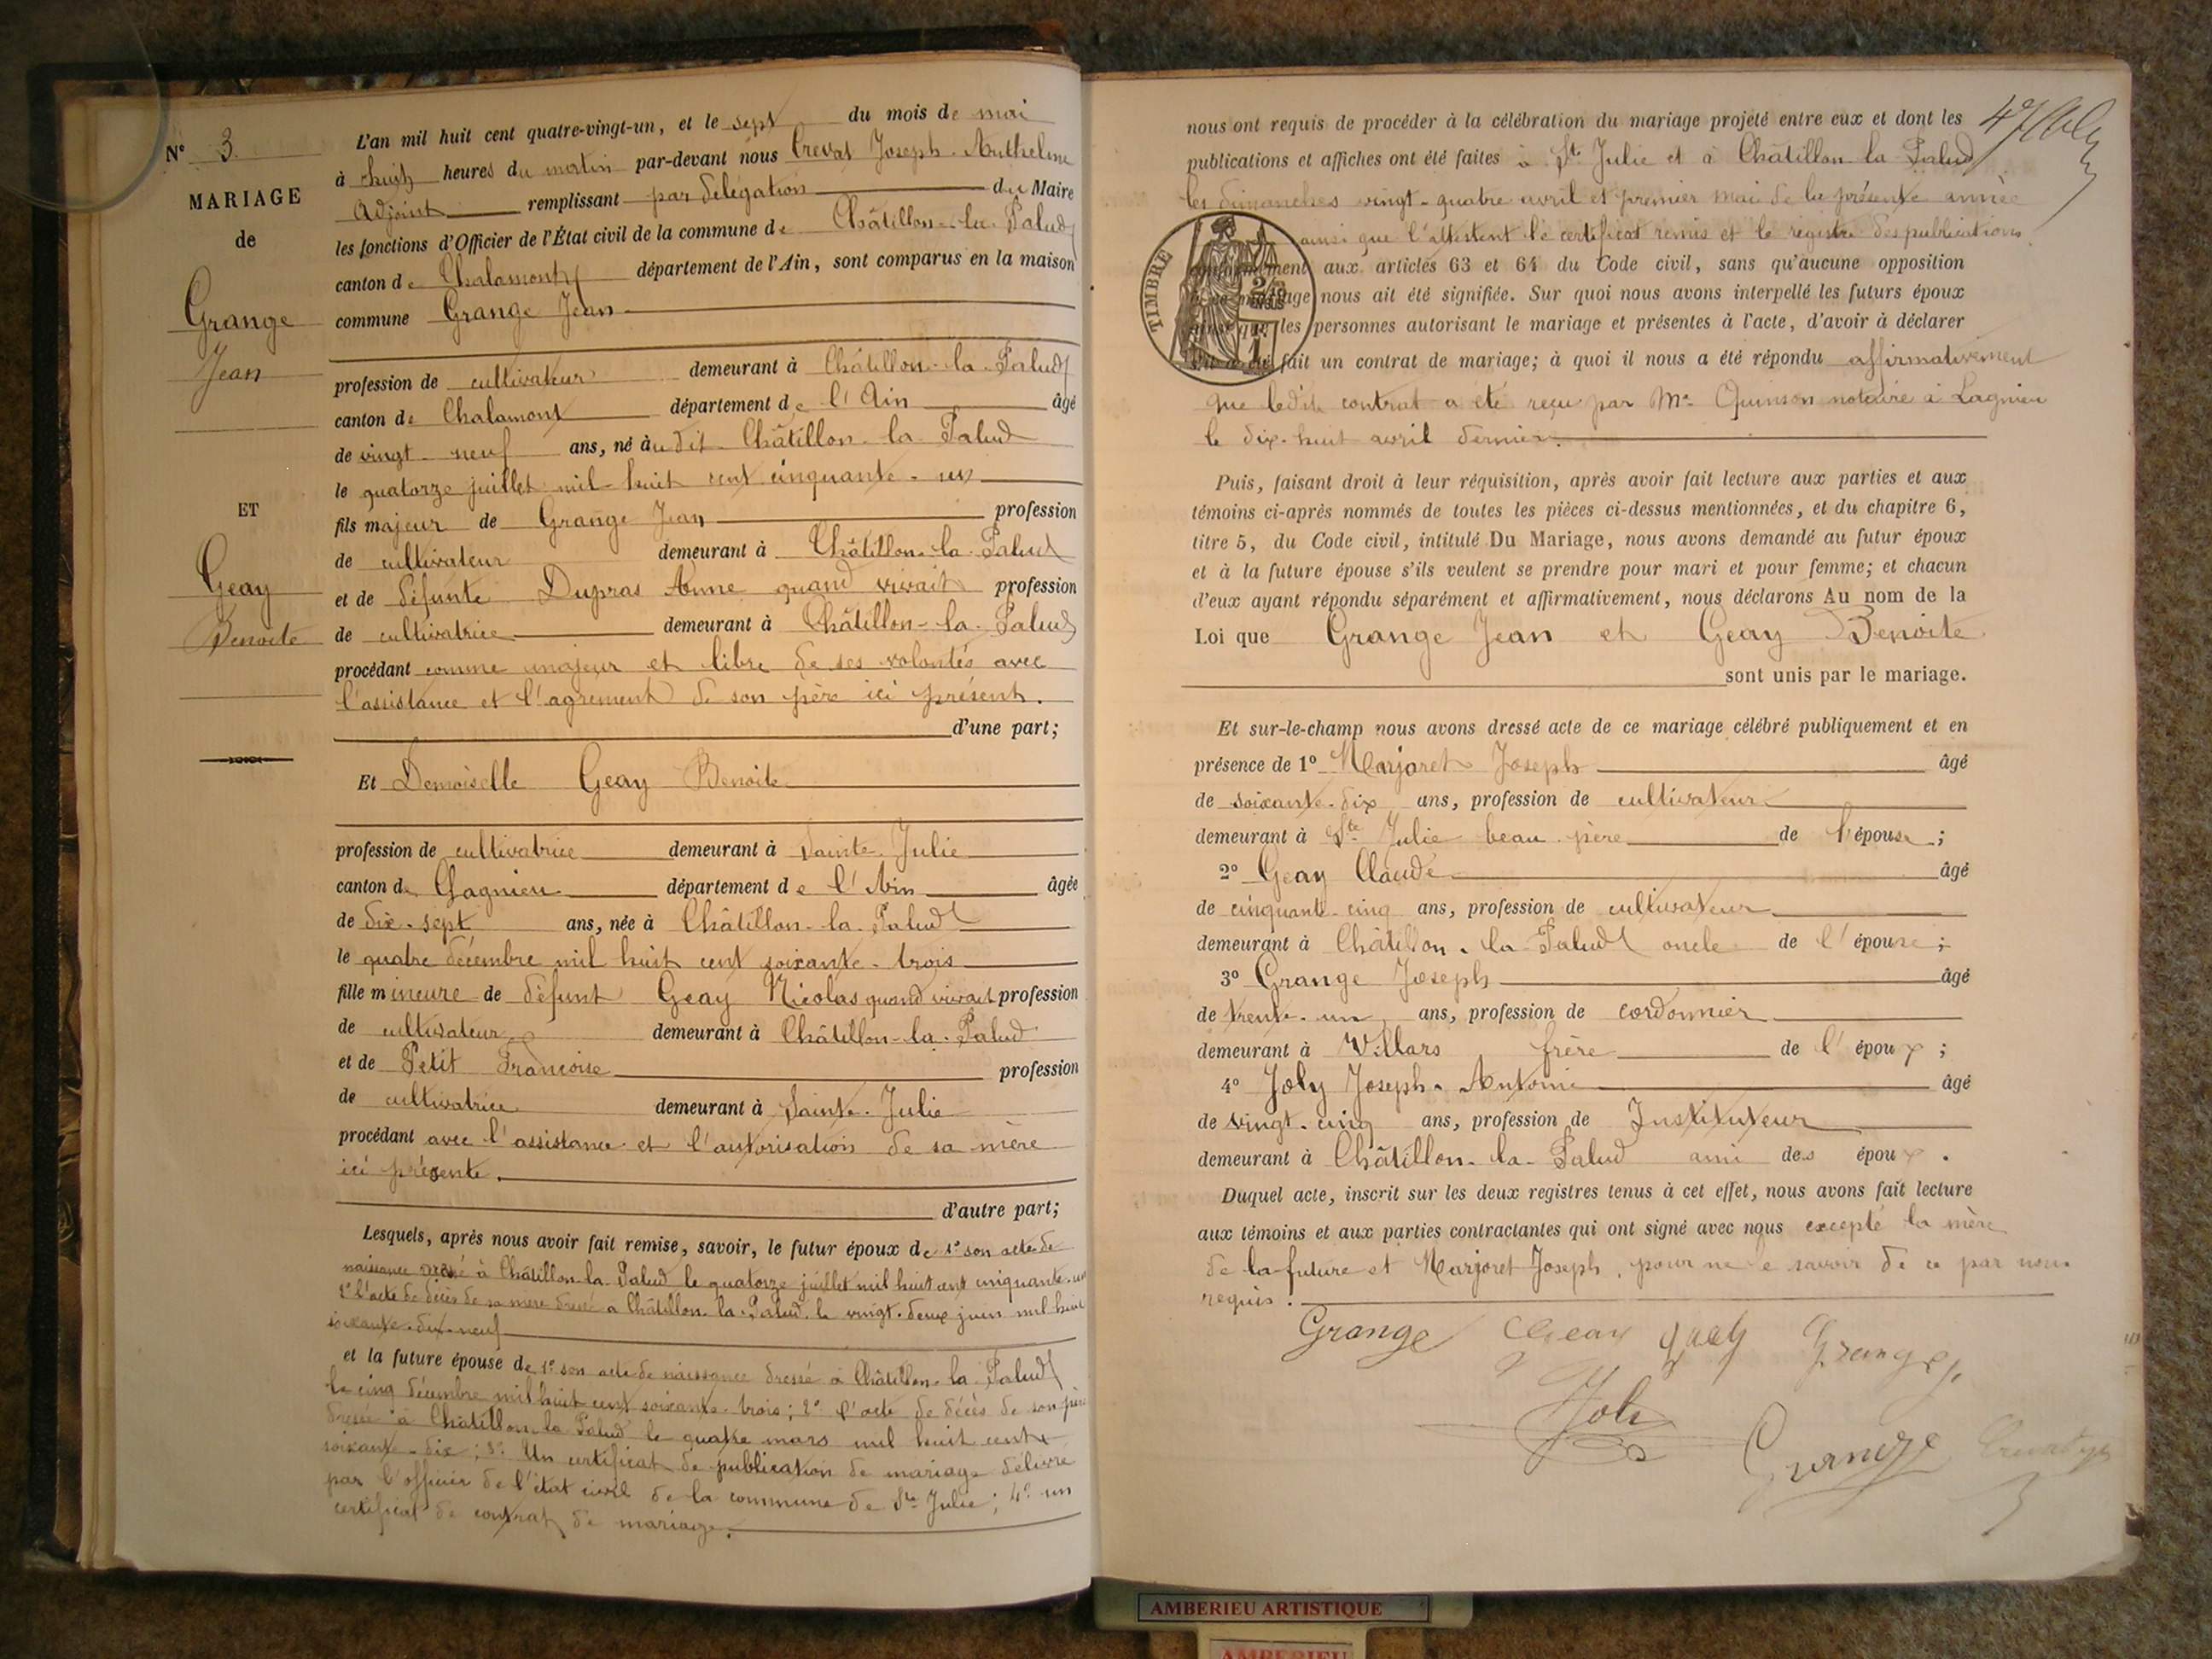 N° 3
MARIAGE
de
Grange
Jean
ET
Geay
Benoite
L'an mil huit cent quatre-vingt-un, et le sept du mois de mai
à huit heures du matin par-devant nous Crevat Joseph-Anthelme
Adjoint remplissant par délégation du Maire
les fonctions d'Officier de l'État civil de la commune de Châtillon-la-Palud
canton de Chalamont département de l'Ain, sont comparus en la maison
commune Grange Jean
profession de cultivateur demeurant à Châtillon-la-Palud
canton de Chalamont département de l'Ain âgé
de vingt-neuf ans, né àudit Châtillon-la-Palud
le quatorze juillet mil-huit cent cinquante-un
fils majeur de Grange Jean profession
de cultivateur demeurant à Châtillon-la-Palud
et de défunte Dupras Anne quand vivait profession
de cultivatrice demeurant à Châtillon-la-Palud
procédant comme majeur et libre de ses volontés avec
l'assistance et l'agrement de son père ici présent.
d'une part;
Et Demoiselle Geay Benoite
profession de cultivatrice demeurant à Sainte-Julie
canton de Lagnieu département de l'Ain âgée
de dix-sept ans, née à Châtillon-la-Palud
le quatre décembre mil huit cent soixante-trois
fille mineure de défunt Geay Nicolas quand vivait profession
de cultivateur demeurant à Châtillon-la-Palud
et de Petit Françoise profession
de cultivatrice demeurant à Sainte-Julie
procédant avec l'assistance et l'autorisation de sa mère
ici présente.
d'autre part;
Lesquels, après nous avoir fait remise, savoir, le futur époux de 1° son acte de
naissance dressé à Châtillon-la-Palud le quatorze juillet mil huit cent cinquante-un
2° l'acte de décès de sa mère dressé à Châtillon-la-Palud le vingt-deux juin mil huit
soixante-dix-neuf
et la future épouse de 1° son acte de naissance dressé à Châtillon-la-Palud
le cinq décembre mil huit cent soixante-trois; 2° l'acte de décès de son père
dressé à Châtillon-la-Palud le quatre mars mil huit cent
soixante-dix; 3° Un certificat de publication de mariage délivré
par l'officier de l'état civil de la commune de Ste Julie; 4° un
certificat de contrat de mariage.
nous ont requis de procéder à la célébration du mariage projeté entre eux et dont les
publications et affiches ont été faites à Ste Julie et à Châtillon-la-Palud
les dimanches vingt-quatre avril et premier mai de la présente année
ainsi que l'attestent le certificat remis et le registre des publications
conformément aux articles 63 et 64 du Code civil, sans qu'aucune opposition
mariage nous ait été signifiée. Sur quoi nous avons interpellé les futurs époux
que les personnes autorisant le mariage et présentes à l'acte, d'avoir à déclarer
fait un contrat de mariage; à quoi il nous a été répondu affirmativement
que ledit contrat a été reçu par Me Quinson notaire à Lagnieu
le dix-huit avril dernier.
TIMBRE
Puis, faisant droit à leur réquisition, après avoir fait lecture aux parties et aux
témoins ci-après nommés de toutes les pièces ci-dessus mentionnées, et du chapitre 6,
titre 5, du Code civil, intitulé Du Mariage, nous avons demandé au futur époux
et à la future épouse s'ils veulent se prendre pour mari et pour femme; et chacun
d'eux ayant répondu séparément et affirmativement, nous déclarons Au nom de la
Loi que Grange Jean et Geay Benoite
sont unis par le mariage.
Et sur-le-champ nous avons dressé acte de ce mariage célébré publiquement et en
présence de 1° Marjoret Joseph âgé
de soixante-dix ans, profession de cultivateur
demeurant à Ste Julie beau-père de l'épouse;
2° Geay Claude âgé
de cinquante-cinq ans, profession de cultivateur
demeurant à Châtillon-la-Palud oncle de l'épouse;
3° Grange Joseph âgé
de trente-un ans, profession de cordonnier
demeurant à Villars frère de l'époux;
4° Joly Joseph-Antoine âgé
de vingt-cinq ans, profession de Instituteur
demeurant à Châtillon-la-Palud ami des époux.
Duquel acte, inscrit sur les deux registres tenus à cet effet, nous avons fait lecture
aux témoins et aux parties contractantes qui ont signé avec nous excepté la mère
de la future et Marjoret Joseph, pour ne le savoir de ce par nous
requis.
Grange Geay Grange
Joly
Grange
AMBERIEU ARTISTIQUE
AMBERIEU